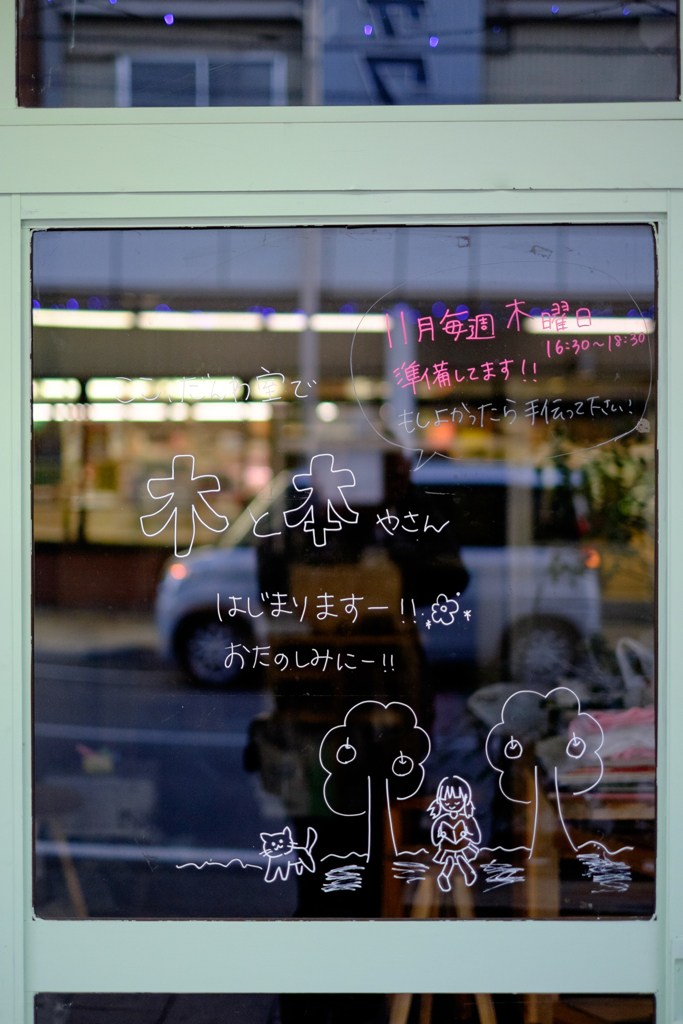 11月毎週木曜日
16:30~18:30
準備してます!!
もしよかったら手伝って下さい!
ここ、だんわ室で
木と本やさん
はじまりますー!!
おたのしみにー!!